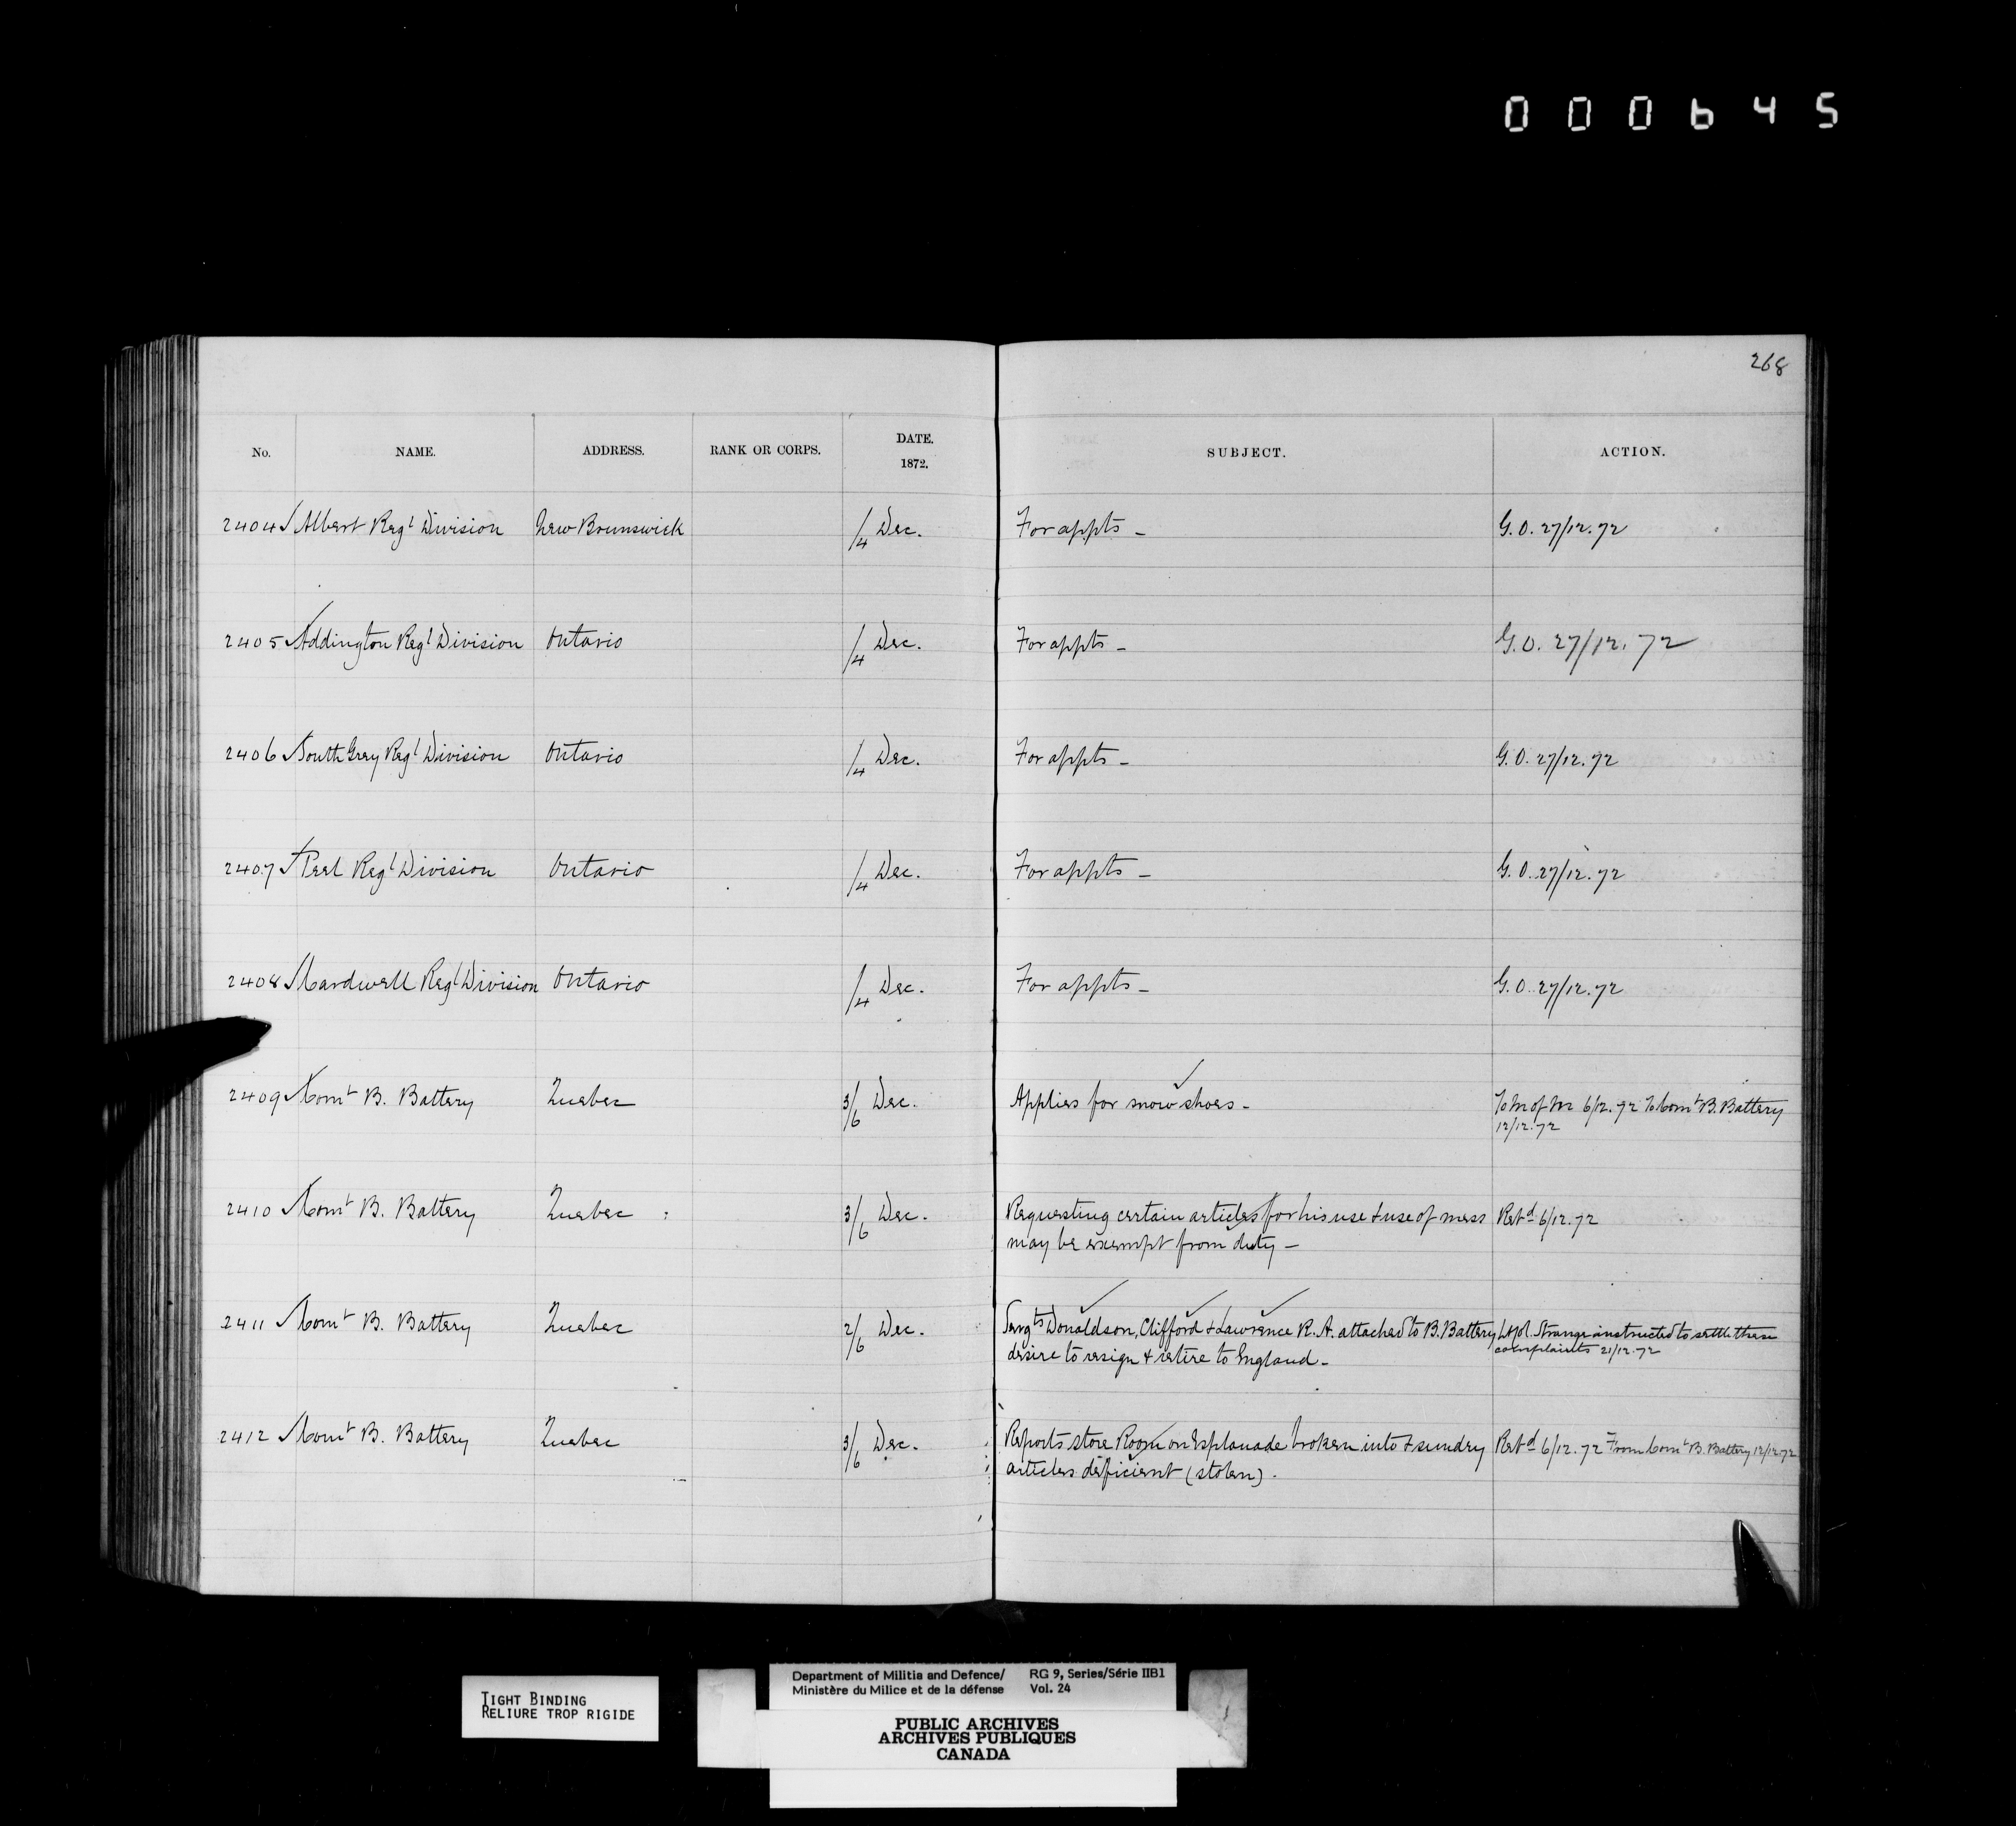 000645
268
No. NAME. ADDRESS. RANK OR CORPS. DATE. 1872. SUBJECT. ACTION.
2404 Albert Regl Division New Brunswick /4 Dec. For appts - G.O. 27/12.72
2405 Addington Regl Division Ontario /4 Dec. For appts - G.O. 27/12.72
2406 South Grey Regl Division Ontario /4 Dec. For appts - G.O. 27/12.72
2407 Peel Regl Division Ontario /4 Dec. For appts - G.O. 27/12.72
2408 Cardwell Regl Division Ontario /4 Dec. For appts - G.O. 27/12.72
2409 Comt B. Battery Quebec 3/6 Dec. Applies for snow shoes - To M of M 6/12.72 To Comt B. Battery
12/12.72
2410 Comt B. Battery Quebec 3/6 Dec. Requesting certain articles for his use & use of mess Retd 6/12.72
may be exempt from duty -
2411 Comt B. Battery Quebec 2/6 Dec. Sergts Donaldson, Clifford & Lawrence R.A. attached to B. Battery Lt Col. Strange instructed to settle these
desire to resign & retire to England - complaints 21/12.72
2412 Comt B. Battery Quebec 3/6 Dec. Reports store Room on Esplanade broken into & sundry Retd 6/12.72 From Comt B. Battery 12/12.72
articles deficient (stolen).
TIGHT BINDING
RELIURE TROP RIGIDE
Department of Militia and Defence/ RG 9, Series/Série IIB1
Ministère du Milice et de la défense Vol. 24
PUBLIC ARCHIVES
ARCHIVES PUBLIQUES
CANADA